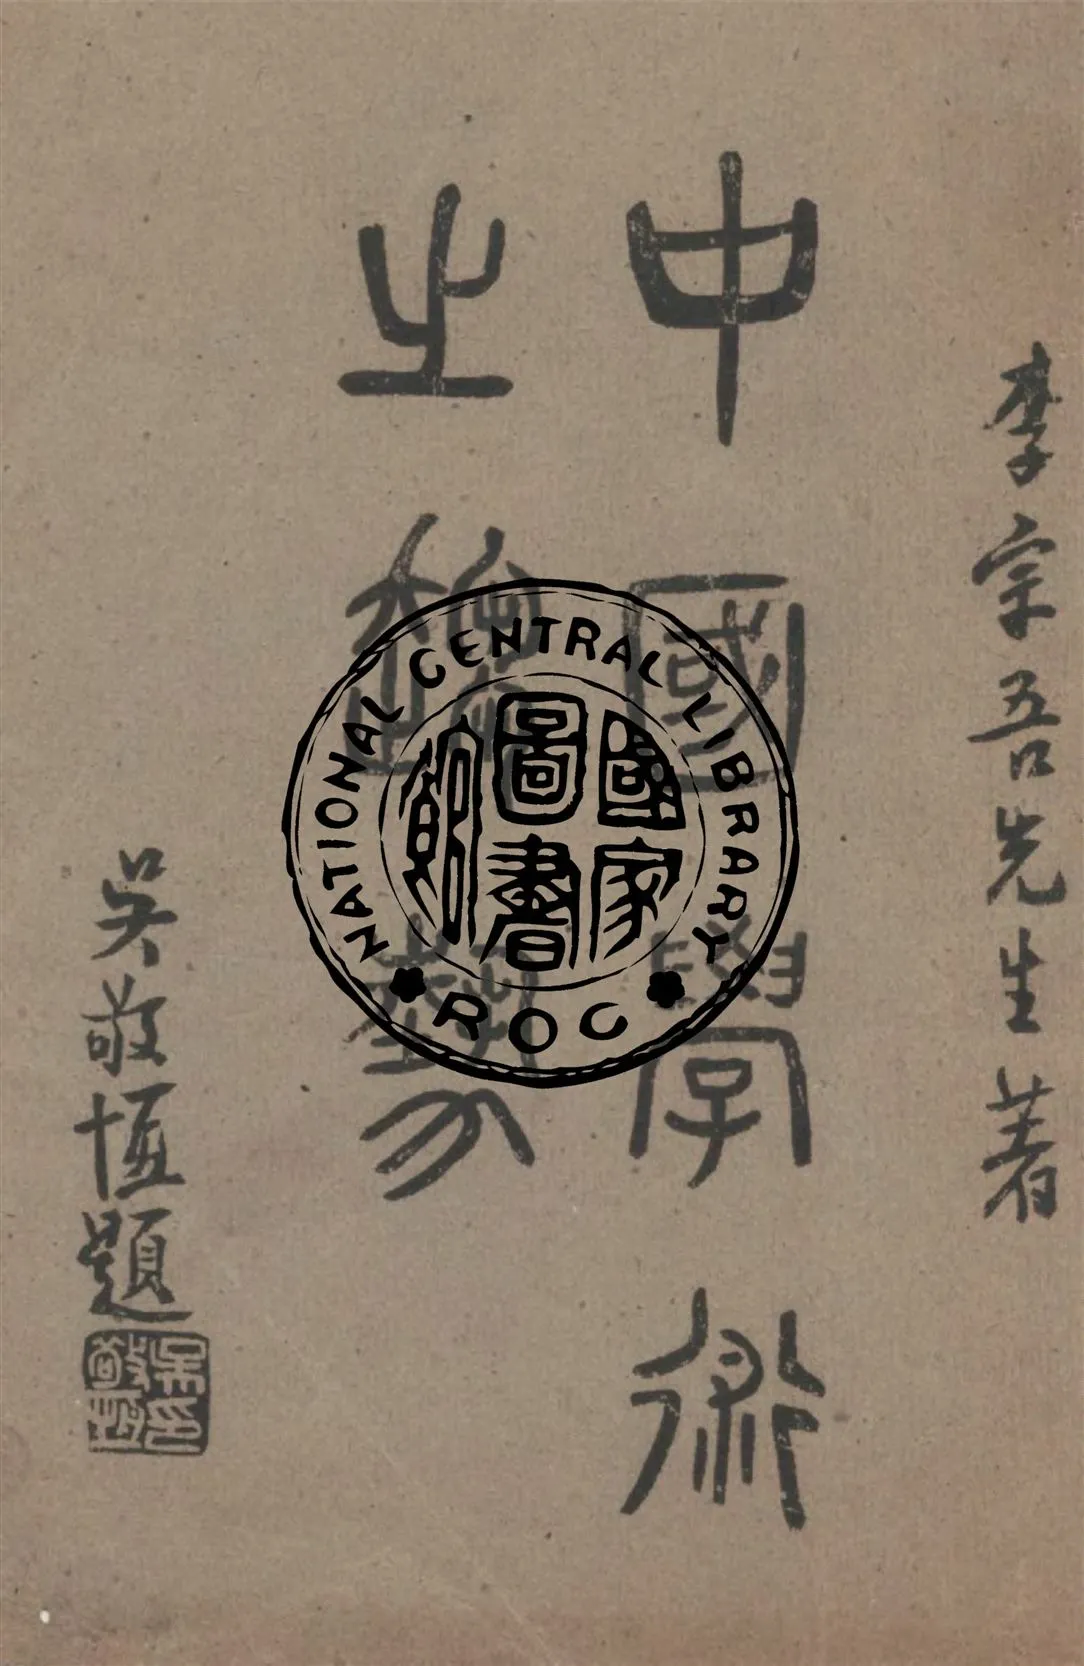 李宗吾先生著
中國學術
之趨勢
吳敬恆題
吳印敬恆
NATIONAL CENTRAL LIBRARY
國家
圖書
館
ROC